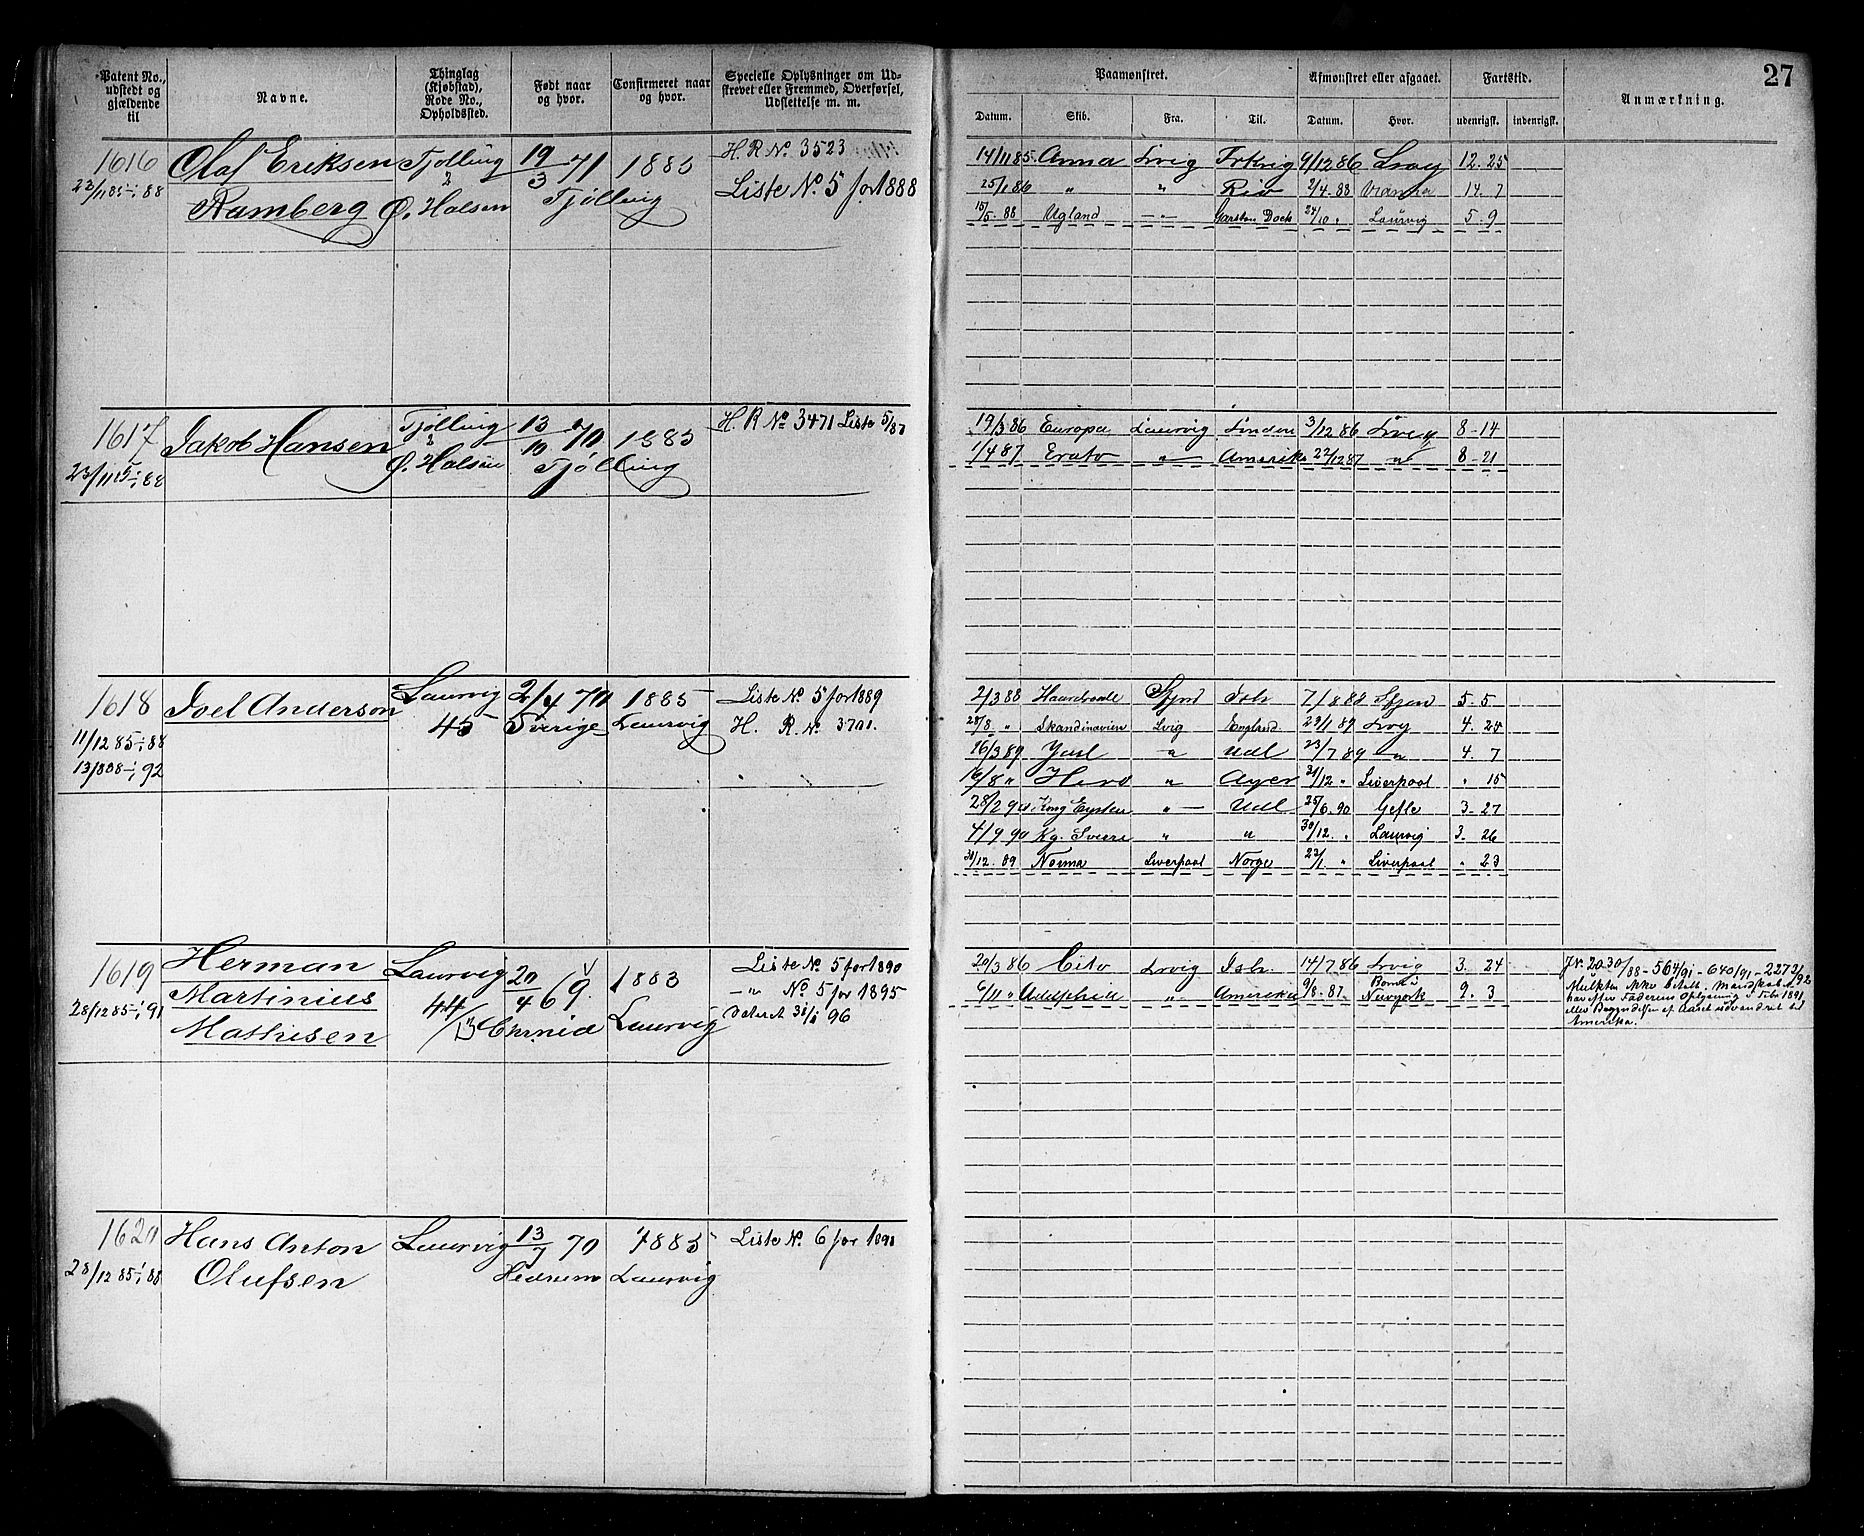 27
Patent No., udstedt og gjældende til
Navne.
Thinglag (Kjøbstad), Rode No., Opholdssted.
Født naar og hvor.
Confirmeret naar og hvor.
Specielle Oplysninger om Udskrevet eller Fremmed, Overførsel, Udslettelse m. m.
Paamønstret.
Afmønstret eller afgaaet.
Fartstid.
Anmærkning.
Datum. Skib. Fra. Til. Datum. Hvor. udenrigsk. indenrigsk.
1616 Olaf Eriksen Tjølling 19/3 71 1885 H. R No. 3523
23/11 85-/88 Ramberg 2 Ø. Halsen Tjølling Liste No. 5 for 1888
14/11 85 Anna Lrvig 9/12 86 Lrvig 12. 25
25/1 86 " " Rio 2/4 88 14. 7
15/5. 88 Ugland -"- Garston Dock 24/10 " Laurvig 5. 9
1617 Jakob Hansen Tjølling 13/10 70 1885 H. R No 3471 Liste 5/87
23/11 85-/88 2 Ø. Halsen Tjølling
19/3 86 Europa Laurvig London 3/12 86 Lrvig 8-14
1/4 87 Erato " Amerika 22/12 87 " 8-21
1618 Joel Anderson Laurvig 2/4 70 1885 Liste No. 5 for 1889
11/12 85-/88 45 Sverige Laurvig H. R. No. 3701.
13/8 88-/92
2/3 88 Haardraade Ish. 7/8 88 5. 5
28/8. " Skandinavien Lvig England 29/1 89 Lrvg 4. 24
16/3 89 Jarl " Udl 23/7 89 " 4. 7
16/8 " Hero " 31/12 " Liverpool " 15
28/2 90 Kong Eysten " Udl 25/6. 90 Gefle 3. 27
4/9 90 Kg. Sverre " " 30/12. " Laurvig 3. 26
31/12. 89 Norma Liverpool Norge 23/1. " Liverpool " 23
1619 Herman Laurvig 20/4 69 1883 Liste No. 5 for 1890
28/12 85-/91 Martinius 44 Laurvig -"- No. 5 for 1895
Mathisen Dateret 31/1 96
20/3 86 Cito Lrvig Ish. 14/7 86 Lrvig 3. 24
6/11 " Adelphia " Amerika 9/8. 87. Newyork 9. 3
J No. 2030/88 - 564/91 - 640/91 - 2272/92
Mulkten ikke betalt. Mandskabet
har efter Faderens Oplysning i Febr 1891
eller Begyndelsen af Aaret udvandret til
Amerika.
1620 Hans Anton Laurvig 13/7 70 1885 Liste No. 6 for 1890
28/12 85-/88 Olufsen Hedrum Laurvig